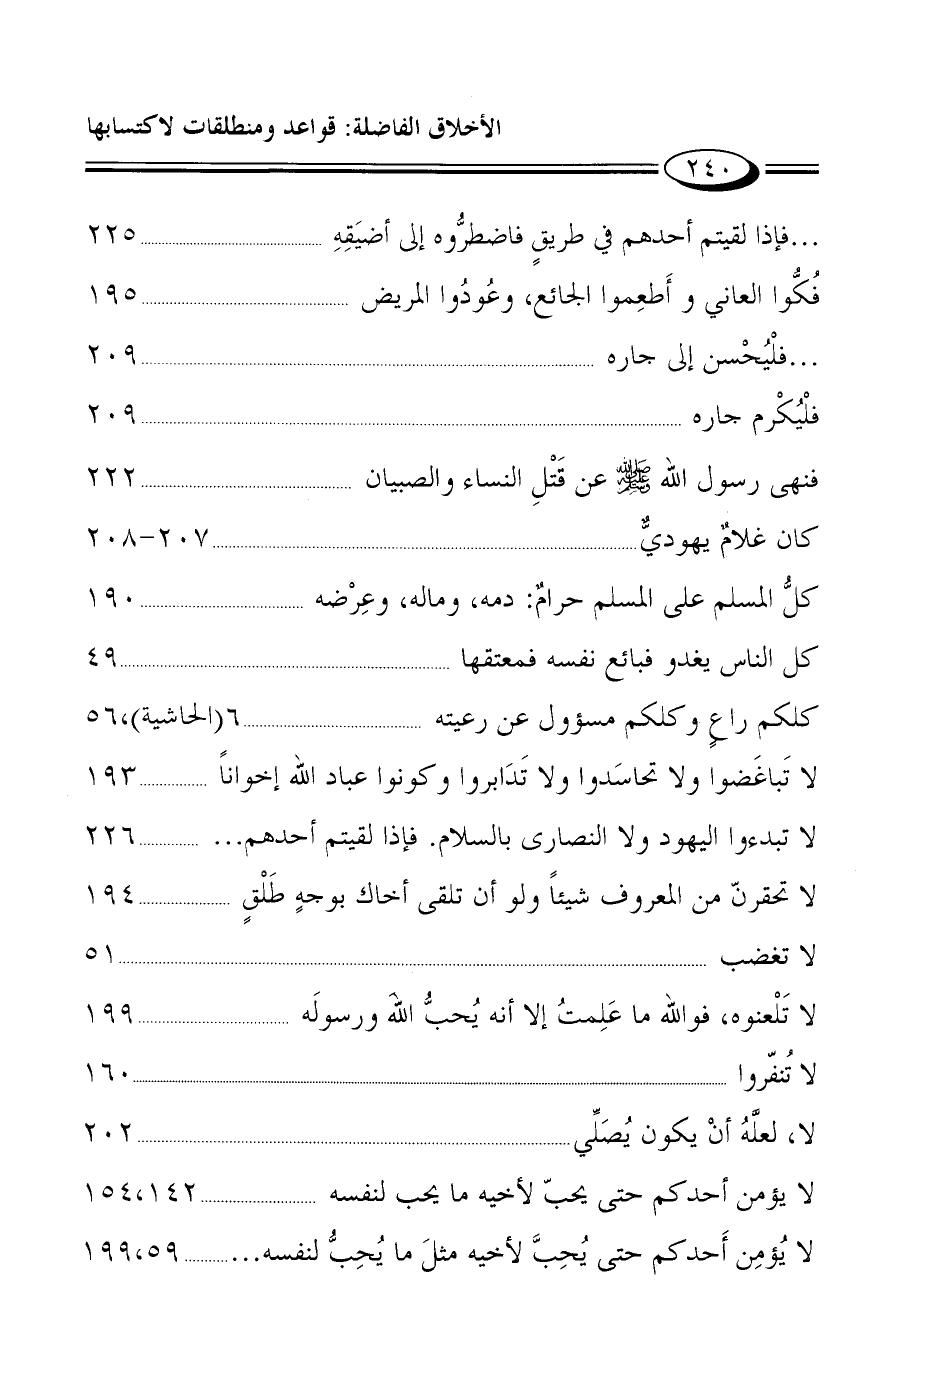 الأخلاق الفاضلة: قواعد ومنطلقات لاكتسابها
٢٤٠
...فإذا لقيتم أحدهم في طريقٍ فاضطرُّوه إلى أضيَقِهِ ........ ٢٢٥
فُكُّوا العاني و أَطعِموا الجائع، وعُودُوا المريض ........ ١٩٥
...فلْيُحْسن إلى جاره ........ ٢٠٩
فلْيُكْرم جاره ........ ٢٠٩
فنهى رسول الله ﷺ عن قَتْلِ النساء والصبيان ........ ٢٢٢
كان غلامٌ يهوديٌّ ........ ٢٠٧-٢٠٨
كلُّ المسلم على المسلم حرامٌ: دمه، وماله، وعِرْضه ........ ١٩٠
كل الناس يغدو فبائع نفسه فمعتقها ........ ٤٩
كلكم راعٍ وكلكم مسؤول عن رعيته ........ ٦(الحاشية)،٥٦
لا تَباغَضوا ولا تحاسَدوا ولا تَدَابروا وكونوا عباد الله إخواناً ........ ١٩٣
لا تبدءوا اليهود ولا النصارى بالسلام. فإذا لقيتم أحدهم... ........ ٢٢٦
لا تحقرنّ من المعروف شيئاً ولو أن تلقى أخاك بوجهٍ طَلْقٍ ........ ١٩٤
لا تغضب ........ ٥١
لا تَلْعنوه، فوالله ما عَلِمتُ إلا أنه يُحبُّ اللهَ ورسولَه ........ ١٩٩
لا تُنفّروا ........ ١٦٠
لا، لعلَّهُ أنْ يكون يُصَلِّي ........ ٢٠٢
لا يؤمن أحدكم حتى يحبّ لأخيه ما يحب لنفسه ........ ١٥٤،١٤٢
لا يُؤمِن أَحدكم حتى يُحِبَّ لأخيه مثلَ ما يُحِبُّ لنفسه... ........ ١٩٩،٥٩